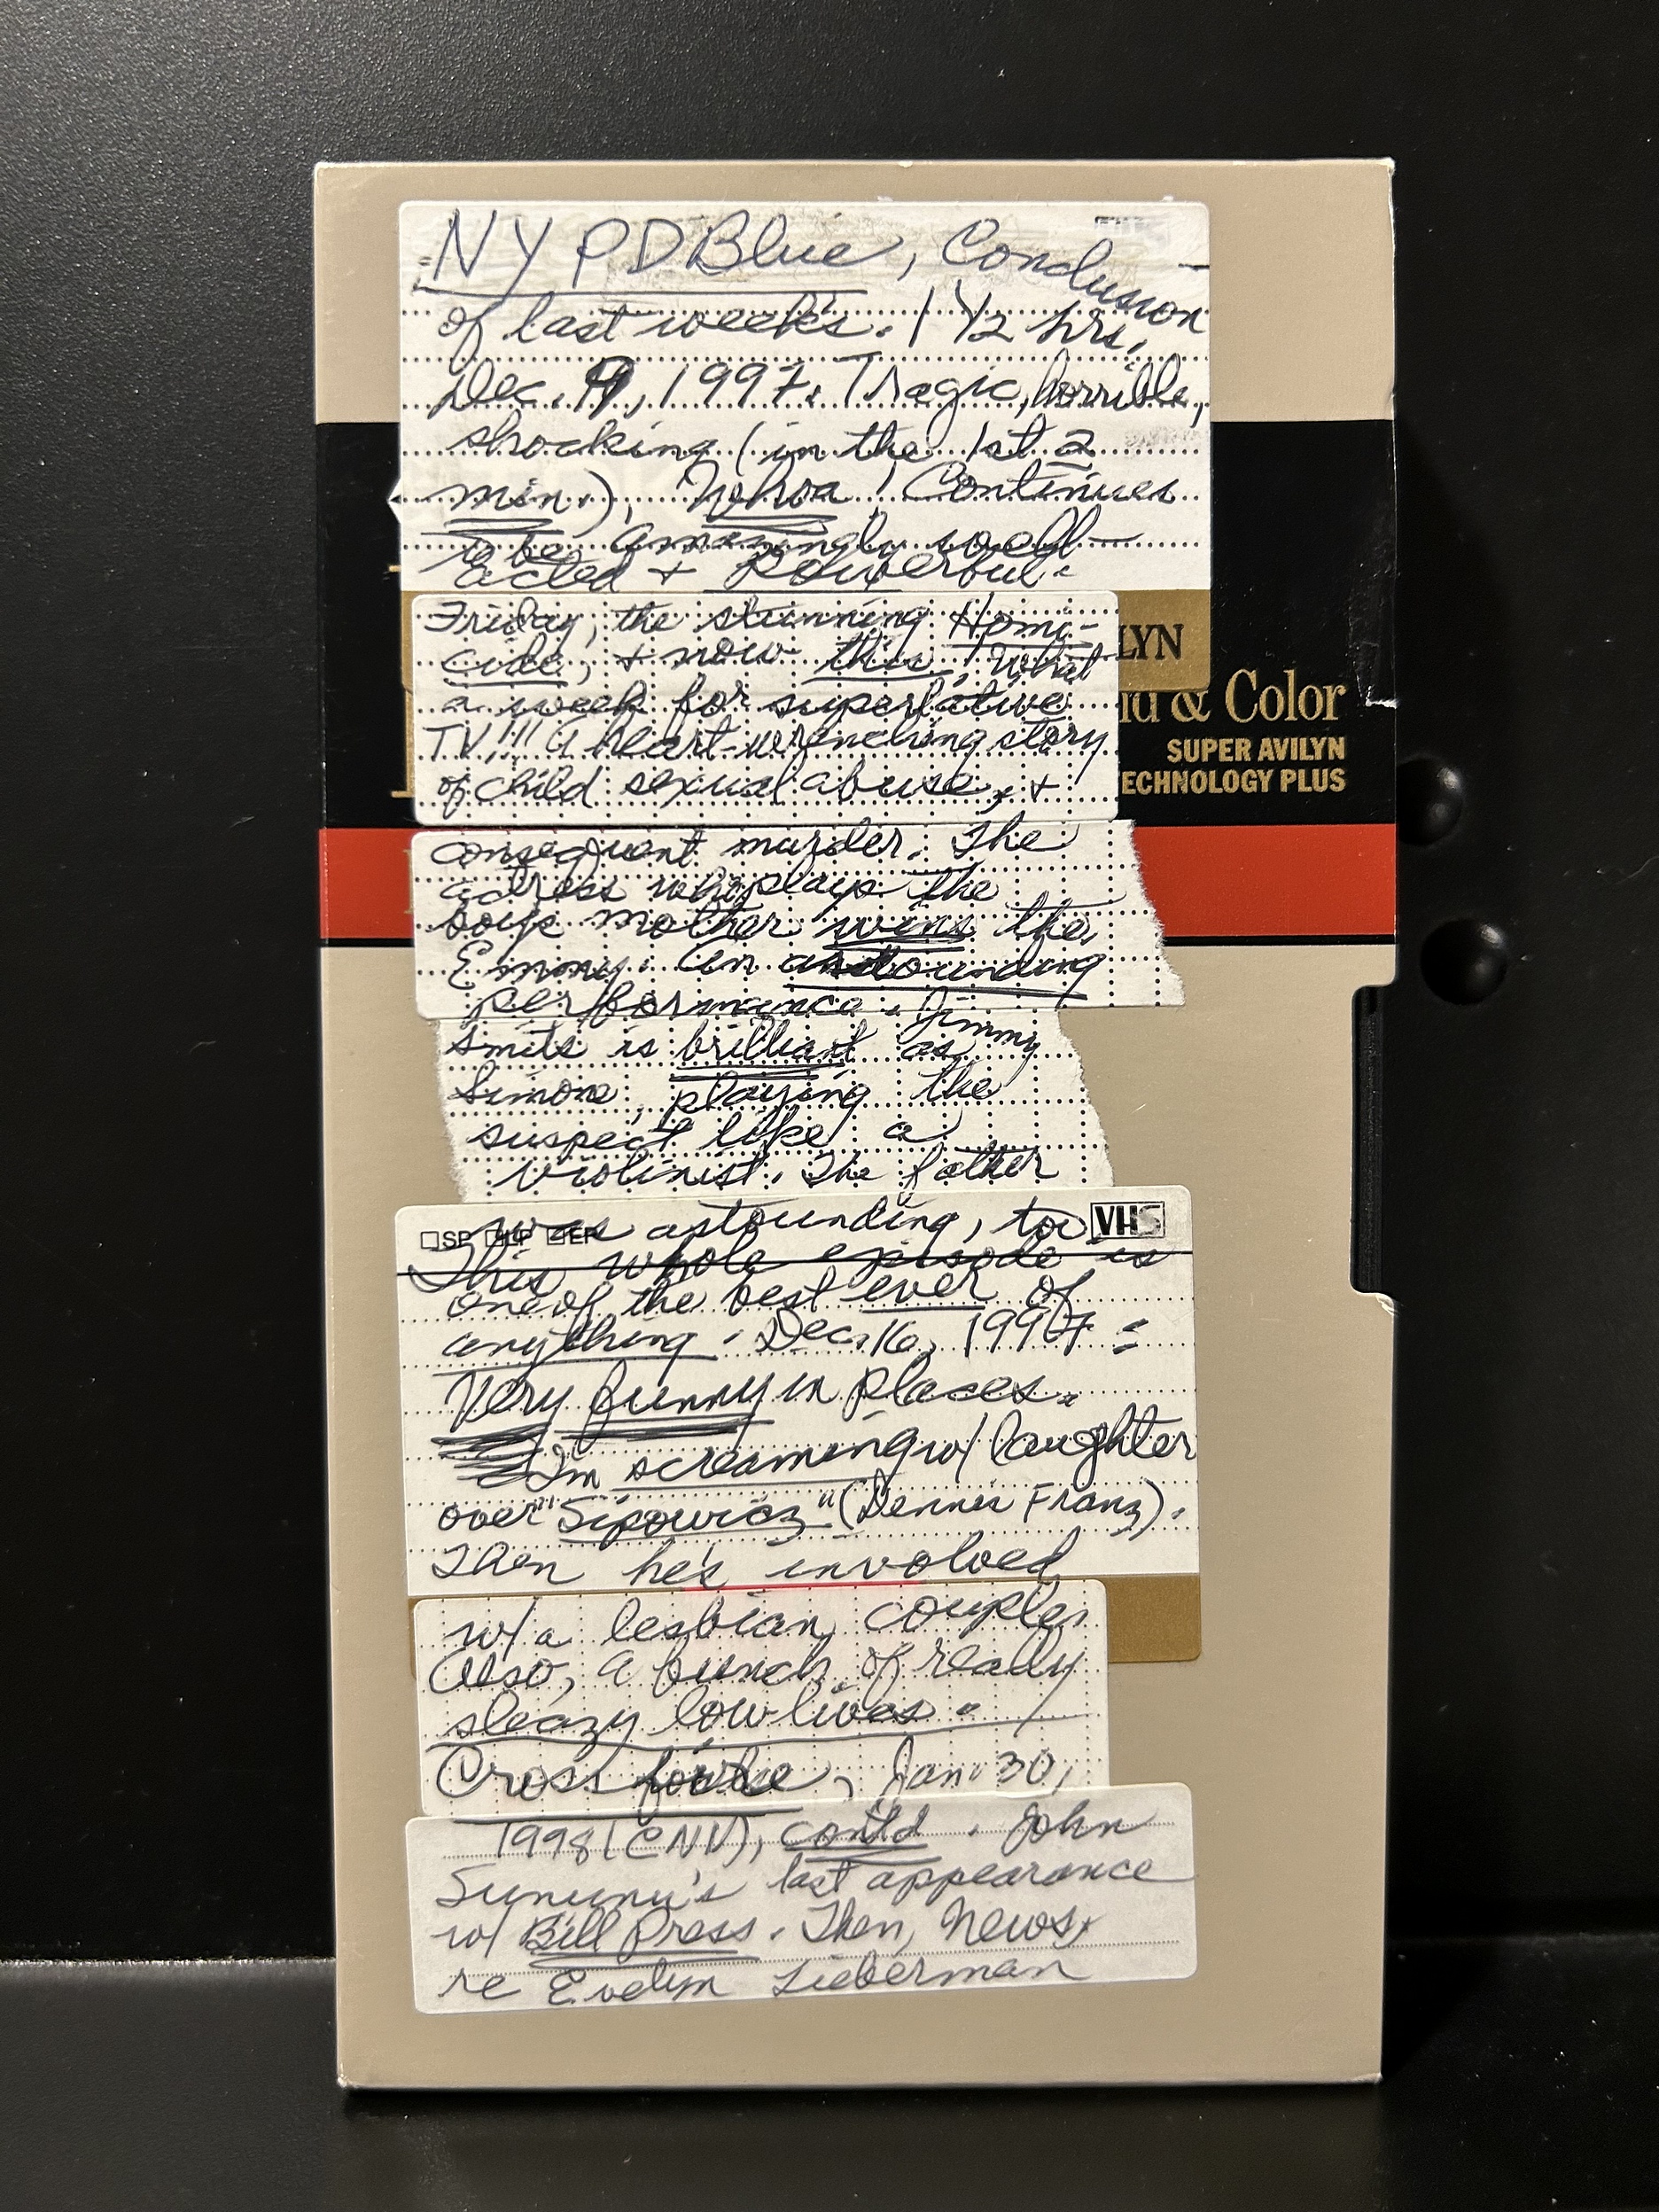 NYPD Blue, Conclusion
of last week's. 1 1/2 hrs,
Dec. 9, 1997. Tragic, horrible,
shocking (in the 1st 2
min.), Whoa! Continues
to be amazingly well-
acted + Powerful.
Friday, the stunning Homi-
cide, + now this. What
a week for superlative
TV!!! A heart-wrenching story
of child sexual abuse, +
consequent murder. The
actress who plays the
boys mother wins the
Emmy. An astounding
performance. Jimmy
Smits is brilliant as
Simone, playing the
suspect like a
violinist. The father
was astounding, too
This whole episode is
one of the best ever of
anything. Dec. 16, 1997:
Very funny in places.
I'm screaming w/ laughter
over "Sipowicz" (Dennis Franz).
Then he's involved
w/ a lesbian couple.
Also, a bunch of really
sleazy lowlives.
Cross , Jan. 30,
1998 (CNN), cont'd. John
Sununu's last appearance
w/ Bill Press. Then, News,
re Evelyn Lieberman
LYN
& Color
SUPER AVILYN
ECHNOLOGY PLUS
SP LP EP
VHS